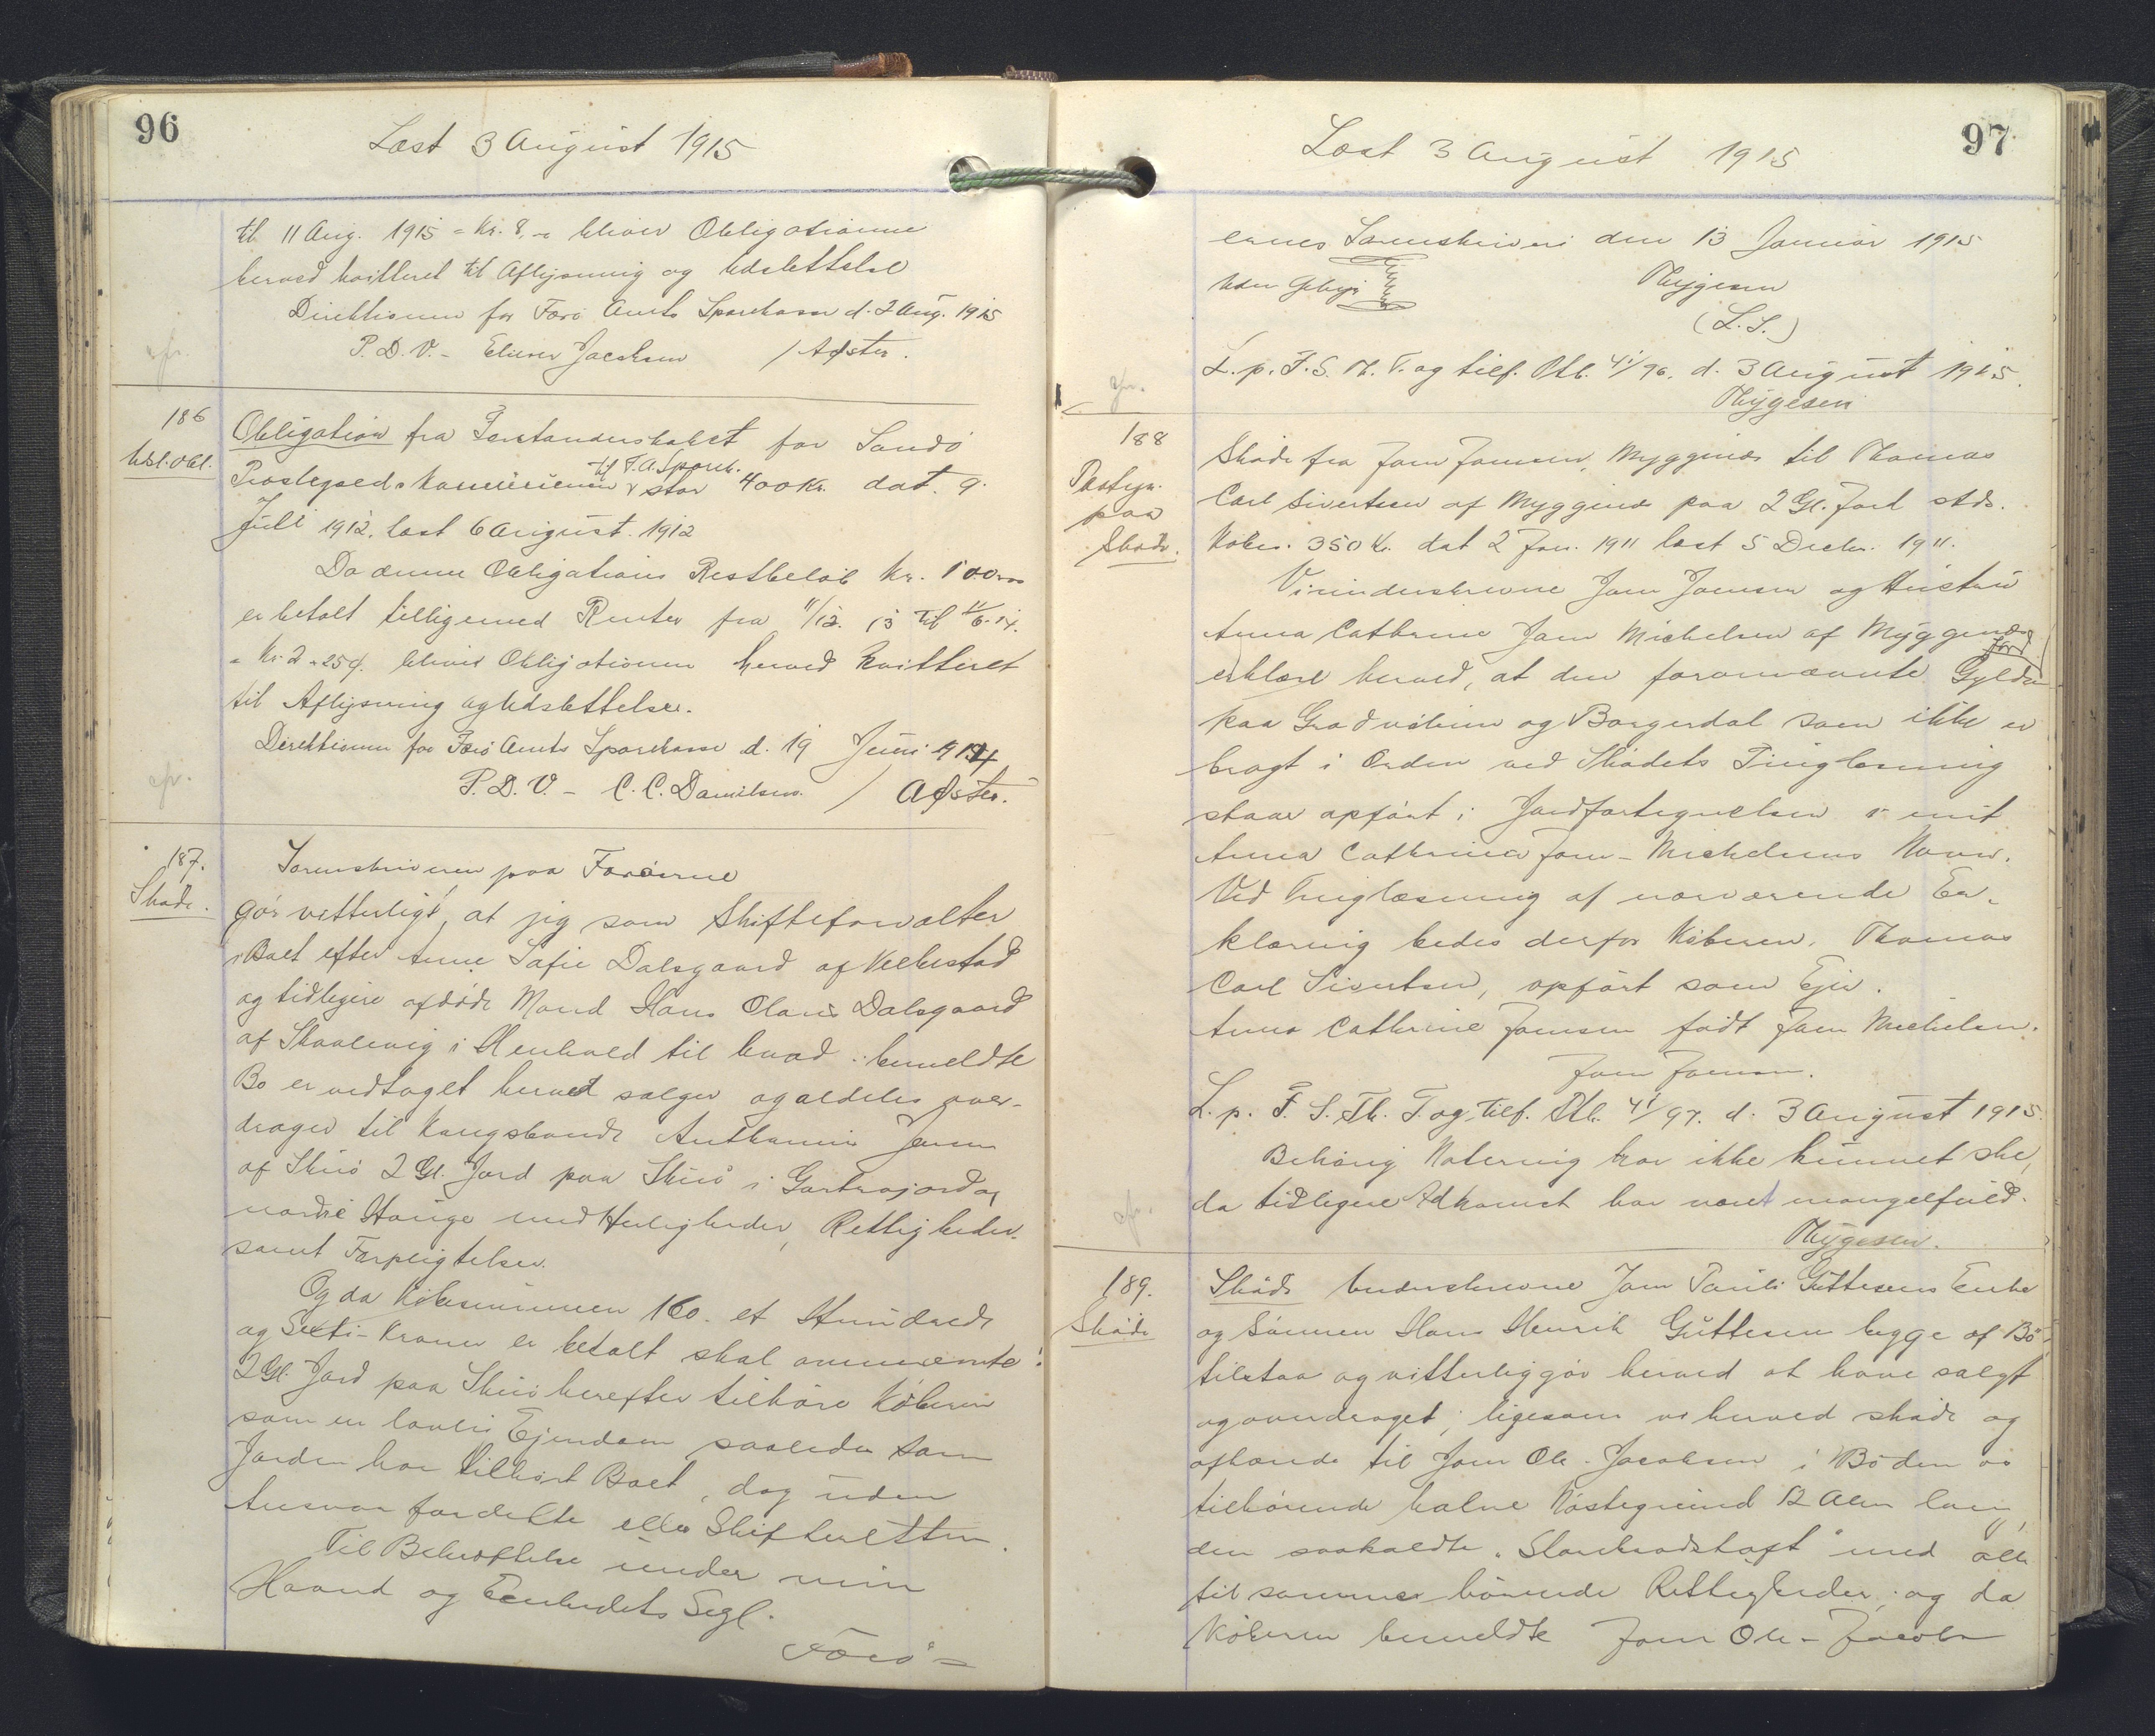 96
Læst 3 August 1915
til 11 Aug. 1915 = Kr. 8,- bliver Obligationerne
herved kvitteret til Aflysning og Udslettelse
Direktionen for Færø Amts Sparekasse d. 2 Aug. 1915
P.D.V. - Elieser Jacobsen / A Øster.
cfr.
186
Udsl. Obl.
Obligation fra Forstanderskabet for Sandø
til F. A. Sparek.
Præstegælds Kommunen stor 400 Kr. dat. 9.
Juli 1912, læst 6 August 1912
Da denne Obligations Restbeløb Kr. 100,00
er betalt tilligemed Renter fra 11/12. 13 til 11/6. 14.
= Kr. 2 - 25 Ø. bliver Obligationen herved kvitteret
til Aflysning og Udslettelse.
Direktionen for Færø Amts Sparekasse d. 19 Juni 1914
P.D.V. - C. C. Danielsen. / A Øster.
cfr.
187.
Skøde.
Sorenskriveren paa Færøerne
gør vitterligt, at jeg som Skifteforvalter
i Boet efter Anne Sofie Dalsgaard af Velbestad
og tidligere afdøde Mand Hans Olaus Dalsgaard
af Skaalevig i Henhold til hvad i bemeldte
Bo er vedtaget herved sælger og aldeles over-
drager til Kongsbonde Anthonius Jensen
af Skuø 2 Gl. Jord paa Skuø i Gartrajord og
nordre Hauge med Herligheder, Rettigheder
samt Forpligtelser.
Og da Købesummen 160. et Hundrede
og Sexti - Kroner er betalt skal ommeldte
2 Gl. Jord paa Skuø herefter tilhøre Køberen
som en lovlig Ejendom saaledes som
Jorden har tilhørt Boet, dog uden
Ansvar for dette eller Skifteretten.
Til Bekræftelse under min
Haand og Embedets Segl.
Færø =
97
Læst 3 August 1915
ernes Sorenskriveri den 13 Januar 1915
Uden Gebyr
Thygesen
(L.S.)
L. p. F. S. Th. T. og tilf. Ptb. 4i/96. d. 3 August 1915.
Thygesen
cfr.
188
Paategn.
paa
Skøde.
Skøde fra Joen Joensen, Myggenæs til Thomas
Carl Sivertsen af Myggenæs paa 2 Gl. Jord stds.
Købes. 350 Kr. dat 2 Jan. 1911 læst 5 Decbr. 1911.
Vi underskrevne Joen Joensen og Hustru
Anna Cathrine Joen Michelsen af Myggenæs
Jord
erklære herved, at den forommeldte Gylden
paa Gradvølleren og Borgerdal som ikke er
bragt i Orden ved Skødets Tinglæsning
staar opført i Jordfortegnelsen i mit
Anna Cathrina Joen - Michelsens Navn.
Ved Tinglæsning af nærværende Er-
klæring bedes derfor Køberen, Thomas
Carl Sivertsen, opført som Ejer.
Anna Cathrine Joensen født Joen Michelsen.
Joen Joensen.
L. p. F. S. Th. T. og tilf. Ptb. 4i/97. d. 3 August 1915.
Behørig Notering har ikke kunnet ske,
da tidligere Adkomst har været mangelfuld.
Thygesen.
cfr.
189.
Skøde
Skøde Underskrevne Joen Pauli Guttesens Enke
og Sønnen Hans Henrik Guttesen begge af Bø
tilstaa og vitterliggør herved at have solgt
og overdraget, ligesom vi herved skøde og
afhænde til Joen Ole - Jacobsen i Bø den os
tilhørende halve Nøstegrund 12 Alen lang,
den saakaldte " med alle
til samme hørende Rettigheder; og da
Køberen bemeldte Joen Ole - Jacobs